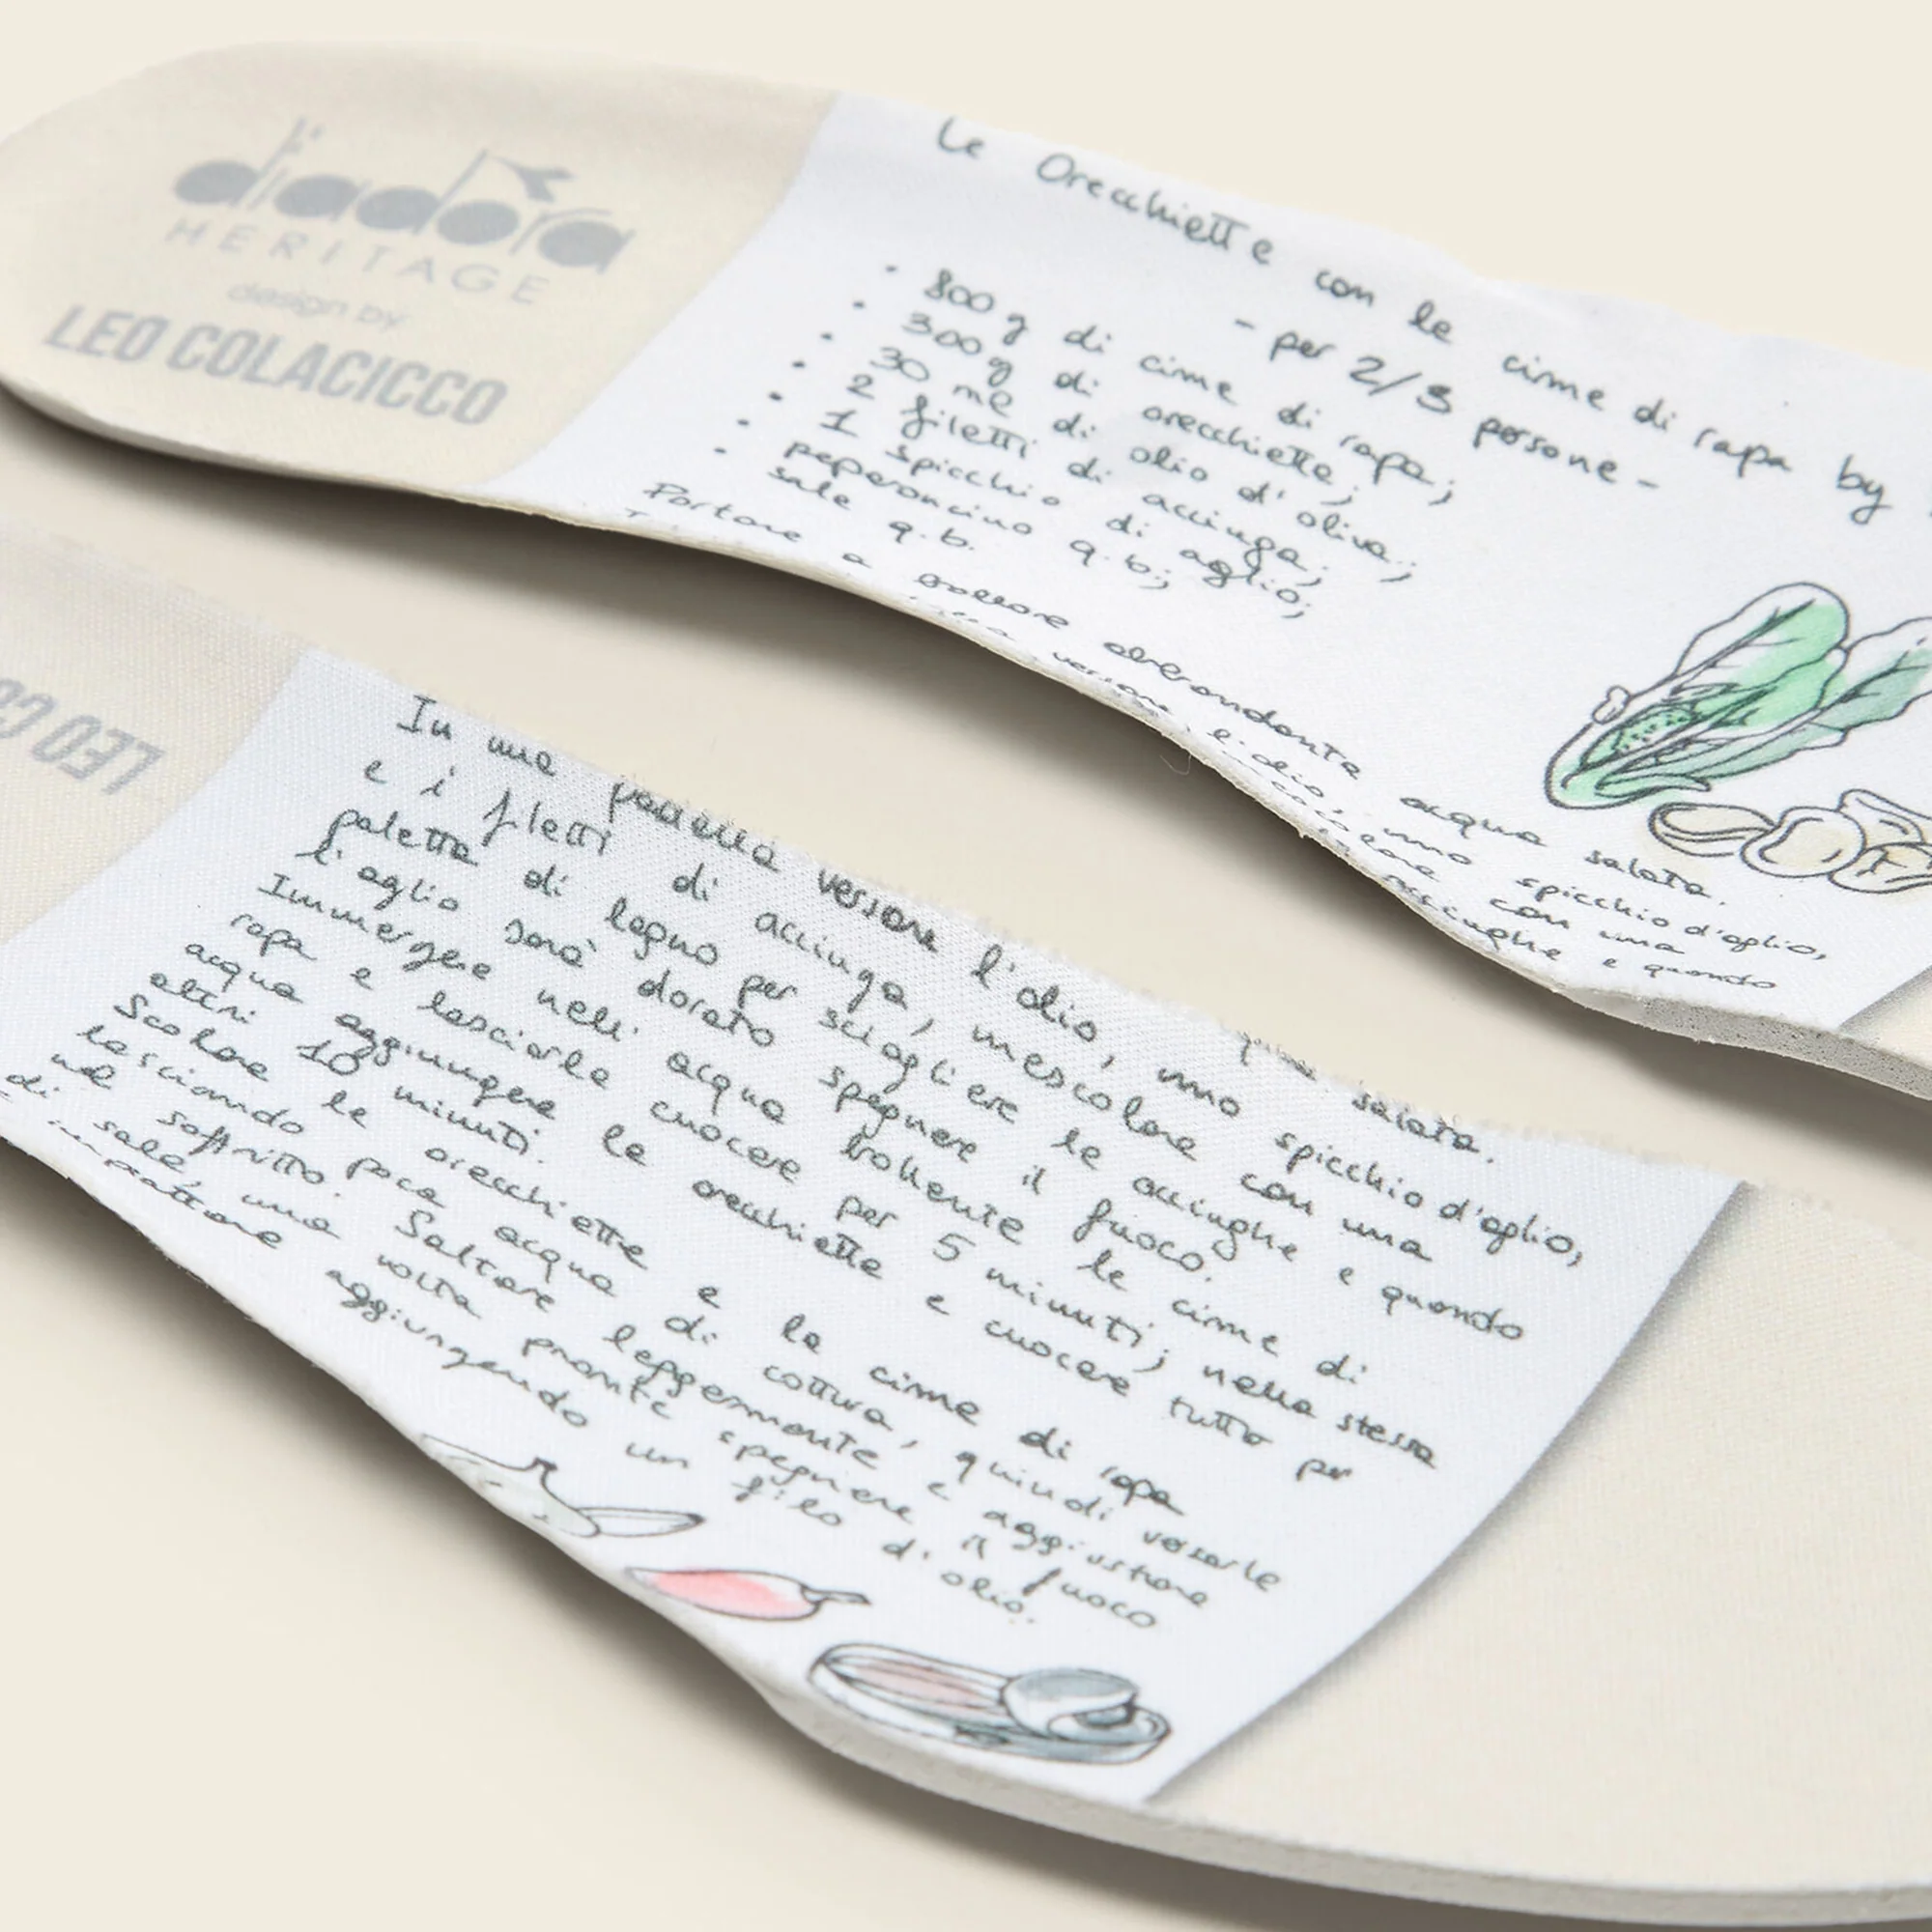 diadora
HERITAGE
design by
LEO COLACICCO
Le Orecchiette con le cime di rapa by
- per 2/3 persone -
• 800 g di cime di rapa;
• 300 g di orecchiette;
• 30 ml di olio d'oliva;
• 2 filetti di acciuga;
• 1 spicchio di aglio;
• peperoncino q.b.;
• sale q.b.
Portare a bollore abbondante acqua salata.
versare l'olio, uno spicchio d'aglio,
con una
acciughe e quando
LEO CO
salata.
In una padella versare l'olio, uno spicchio d'aglio,
e i filetti di acciuga, mescolare con una
paletta di legno per sciogliere le acciughe e quando
l'aglio sarà dorato spegnere il fuoco.
Immergere nell'acqua bollente le cime di
rapa e lasciarle cuocere per 5 minuti; nella stessa
acqua aggiungere le orecchiette e cuocere tutto per
altri 10 minuti.
Scolare le orecchiette e le cime di rapa
lasciando poca acqua di cottura, quindi versarle
nel soffritto. Saltare leggermente e aggiustare
di sale, una volta pronte spegnere il fuoco
e impiattare aggiungendo un filo d'olio.